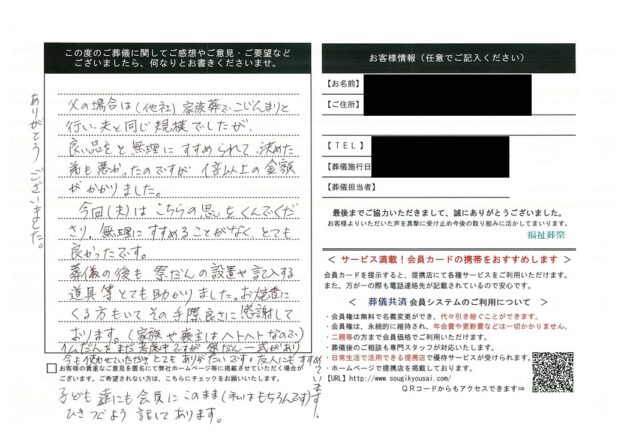 この度のご葬儀に関してご感想やご意見・ご要望など
ございましたら、何なりとお書きくださいませ。
父の場合は(他社)家族葬でこじんまりと
行い、夫と同じ規模でしたが、
良い品をと無理にすすめられて、決めた
弟も悪かったのですが 倍以上の金額
がかかりました。
今回(夫)は こちらの思いをくんでくだ
さり、無理にすすめることがなく、とても
良かったです。
葬儀の後も 祭だんの設置や記入する
道具等とても助かりました。お焼香に
くる方もいて その手際良さに感謝して
おります。(家族や喪主はヘトヘトなので)
仏だんをまだ考慮中ですが 祭だん一式があり
今も使わせていただき とてもありがたいです。友人にもすすめています。
ありがとうございました。
お客様の貴重なご意見を匿名にて弊社ホームページ等に掲載させていただく場合が
ございます。ご希望されない方は、こちらにチェックをお願いいたします。
子ども達にも会員にこのまま(私はもちろんです)
ひきつぐよう 話してあります。
お客様情報(任意でご記入ください)
【お名前】
【ご住所】
【TEL】
【葬儀施行日】
【葬儀担当者】
最後までご協力いただきまして、誠にありがとうございました。
お客様よりいただいた声を真摯に受け止め今後の取り組みに活かしてまいります。
福祉葬祭
< サービス満載!会員カードの携帯をおすすめします >
会員カードを提示すると、提携店にて各種サービスをご利用いただけます。
また、万が一の際も電話連絡先が記載されているので安心です。
< 葬儀共済 会員システムのご利用について >
・会員権は無料で名義変更ができ、代々引き継ぐことができます。
・会員権は、永続的に維持され、年会費や更新費などは一切かかりません。
・二親等の方まで会員価格でご利用いただけます。
・葬儀後のご相談も専門スタッフが対応いたします。
・日常生活で活用できる提携店で優待サービスが受けられます。
・ホームページで提携店を掲載しております。
【URL】http://www.sougikyousai.com/
QRコードからもアクセスできます⇒